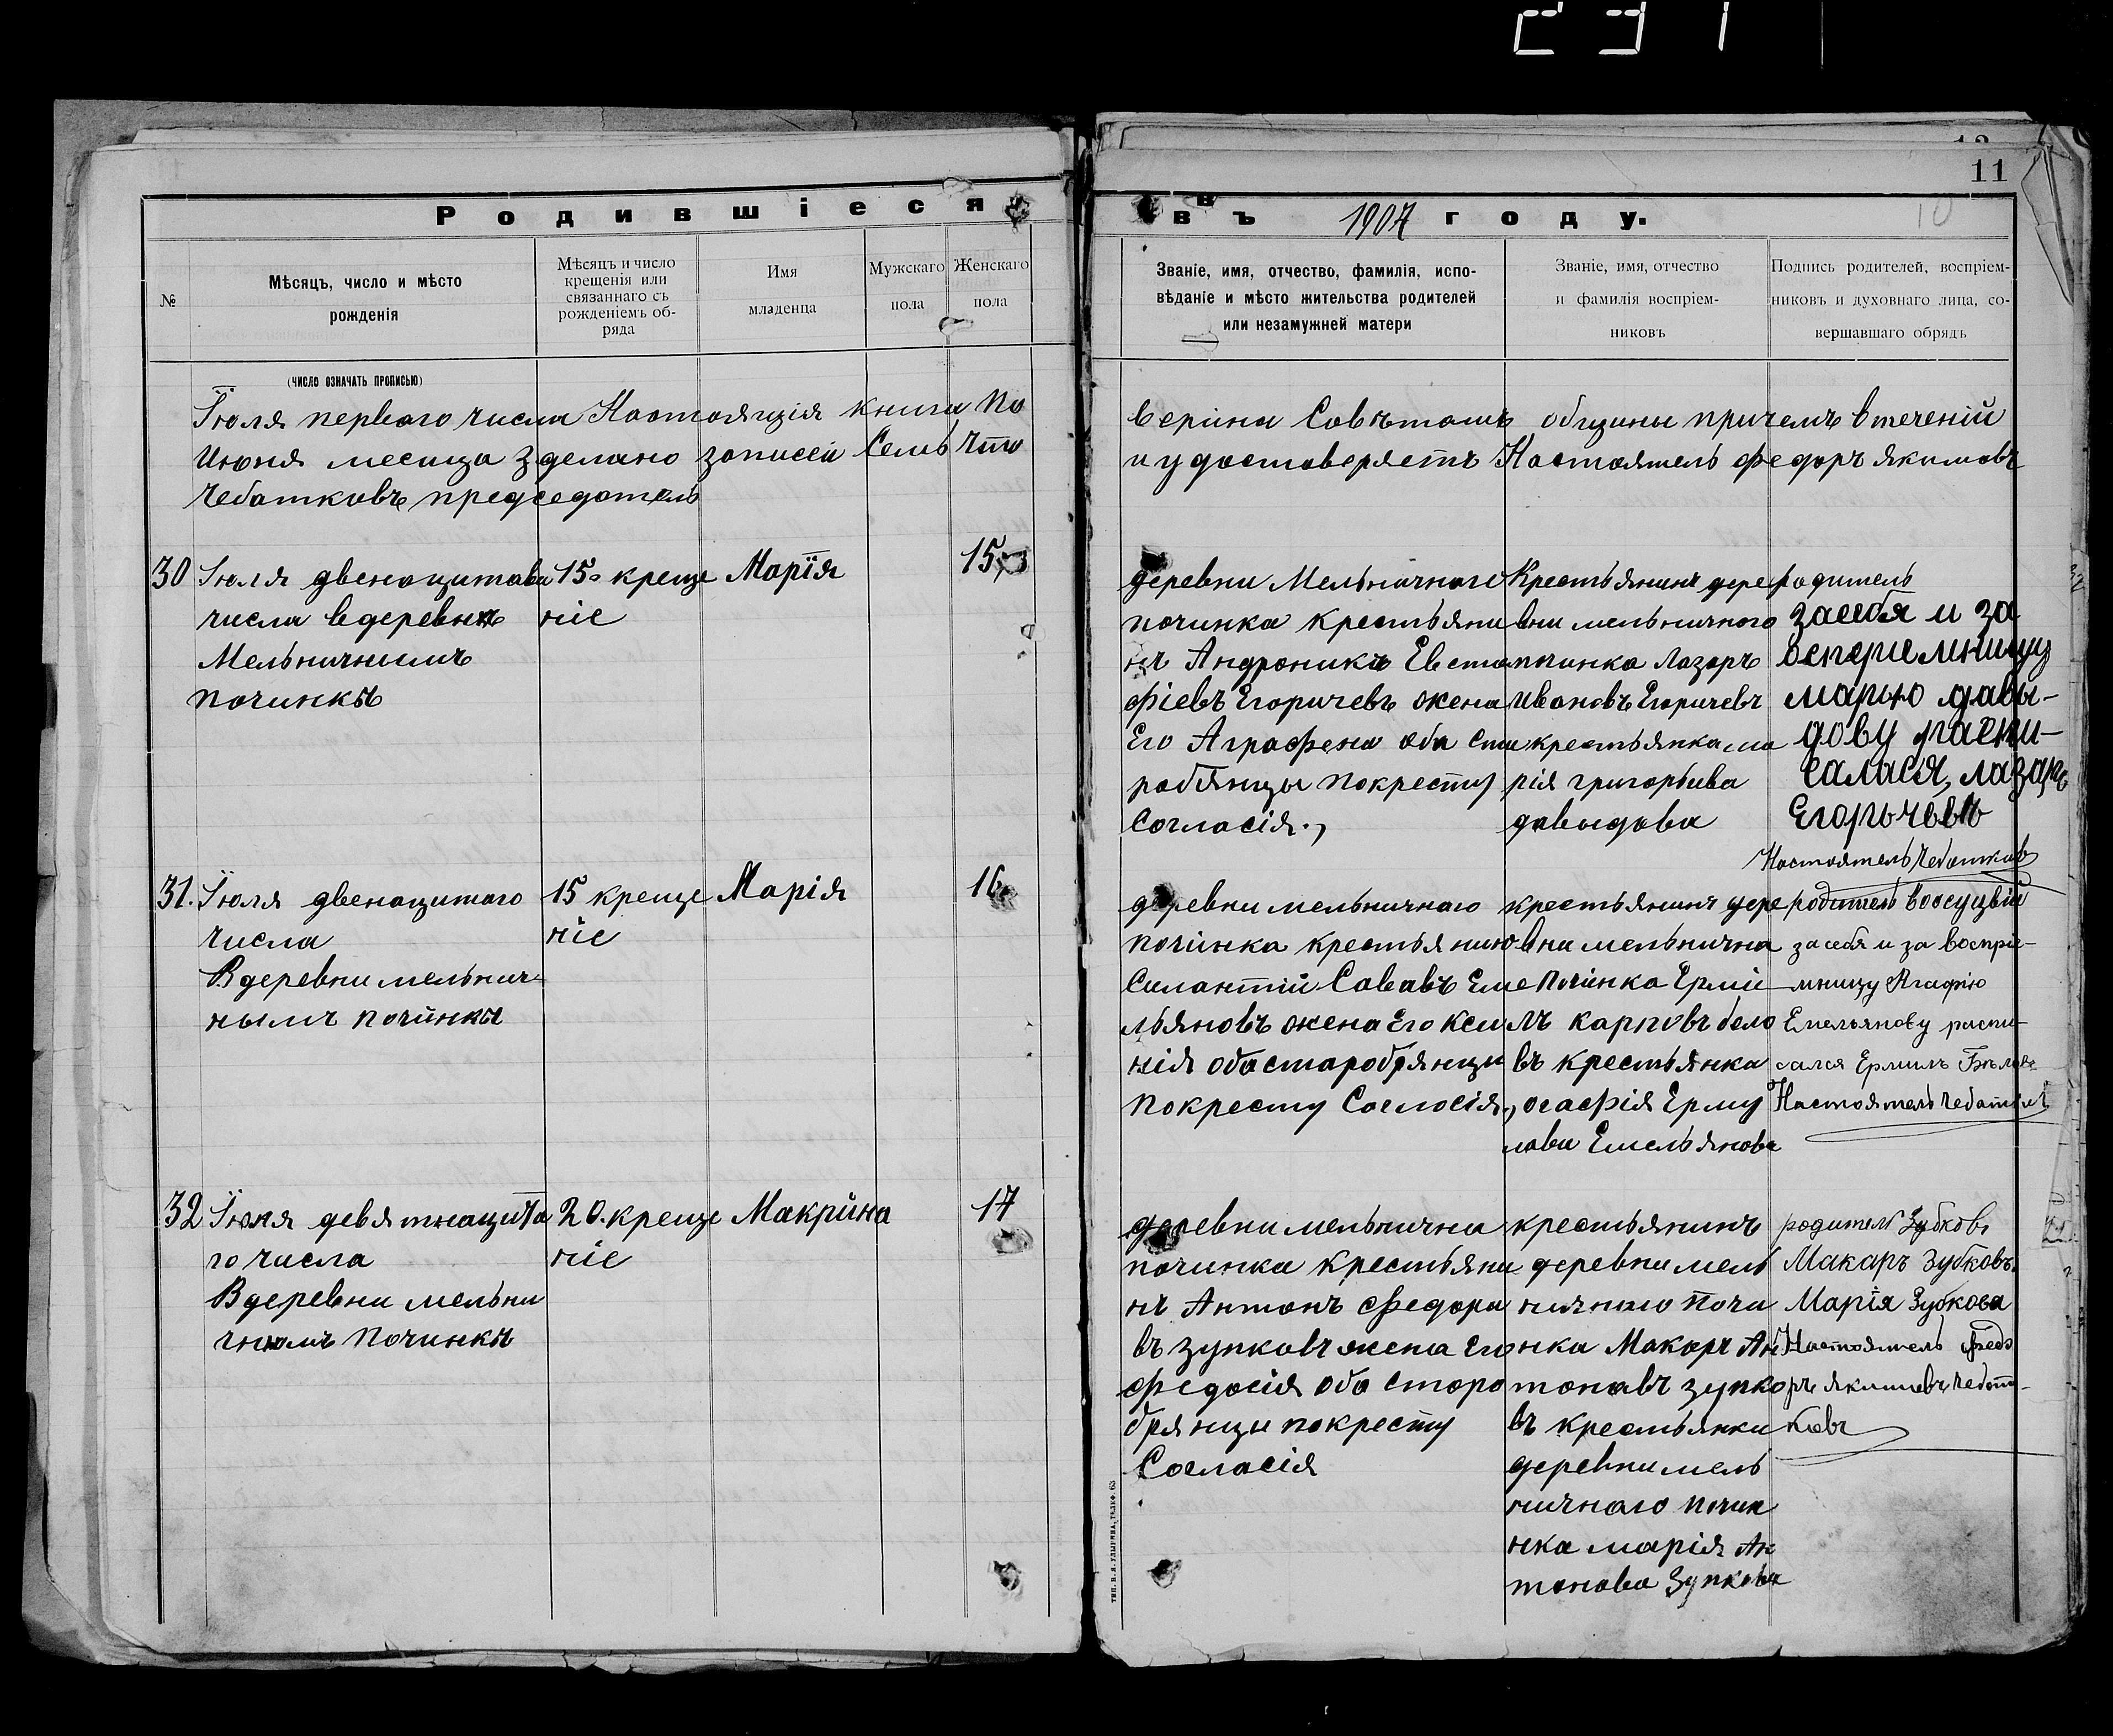 231
11
10
Родившіеся
въ 1907 году.
№
Мѣсяцъ, число и мѣсто
рожденія
Мѣсяцъ и число
крещенія или
связаннаго съ
рожденіемъ об-
ряда
Имя
младенца
Мужскаго
пола
Женскаго
пола
Званіе, имя, отчество, фамилія, испо-
вѣданіе и мѣсто жительства родителей
или незамужней матери
Званіе, имя, отчество
и фамилія воспріем-
никовъ
Подпись родителей, воспріем-
никовъ и духовнаго лица, со-
вершавшаго обрядъ
(число означать прописью)
Іюля перваго числа Настоящія книга по
верина Совѣтомъ общины причемъ втеченій
Июня месяца зделано записей Семь что
и удостоверяетъ Настоятель федоръ якимовъ
Чебатковъ председатель
30
Іюля двенацитава
числа вдеревнѣ
Мельничнымъ
починкѣ
15 креще
ніе
Марія
15
деревни Мельничнаго
починка крестьяни
нъ Андроникъ Евста
фіевъ Егоричевъ жена
Его Аграфена оба ста
робрянцы покресту
Согласія
Крестьянинъ дере
вни мельничного
починка Лазоръ
Ивановъ Егоричевъ
крестьянка ма
рія григорьива
давыдова
родитель
засебя и за
восприемницу
марию давы-
дову распи-
сался, лазарь
Егорычевъ
Настоятель Чебатков
31.
Іюля двенацитого
числа
Вдеревни мельнич-
нымъ починкѣ
15 креще
ніе
Марія
16
деревни мельничнаго
починка крестьянин
Силантий Сававъ Еме
льяновъ жена Его ксе
нія оба старобрянцы
покресту Согласія,
крестьянинъ дере
вни мельнична
починка Ермі
лъ карповъ бело
въ крестьянка
огафія Ерму
лова Емельянова
родитель
за себя и за воспріе-
мницу Агафію
Емельянову распи-
сался Ермилъ Бѣлов
Настоятель Чебатковъ
32
Іюля девятнацита
го числа
Вдеревни мельни
чнымъ починкѣ
20. креще
ніе
Макрина
17
деревни мельнична
починка крестьяни
нъ Антонъ федора
въ зупковъ жена его
федосія оба старо
брянцы покресту
Согласія
крестьянинъ
деревни мель
ничнаго почи
нка Макаръ Ан
тонавъ зупко
въ крестьянки
деревни мель
ничнаго почин
нка марія Ан
тонова Зупкова
родитель Зубковъ
Макаръ Зубковъ.
Марія Зубкова
Настоятель Федо
ръ якимовъ чебот-
ковъ